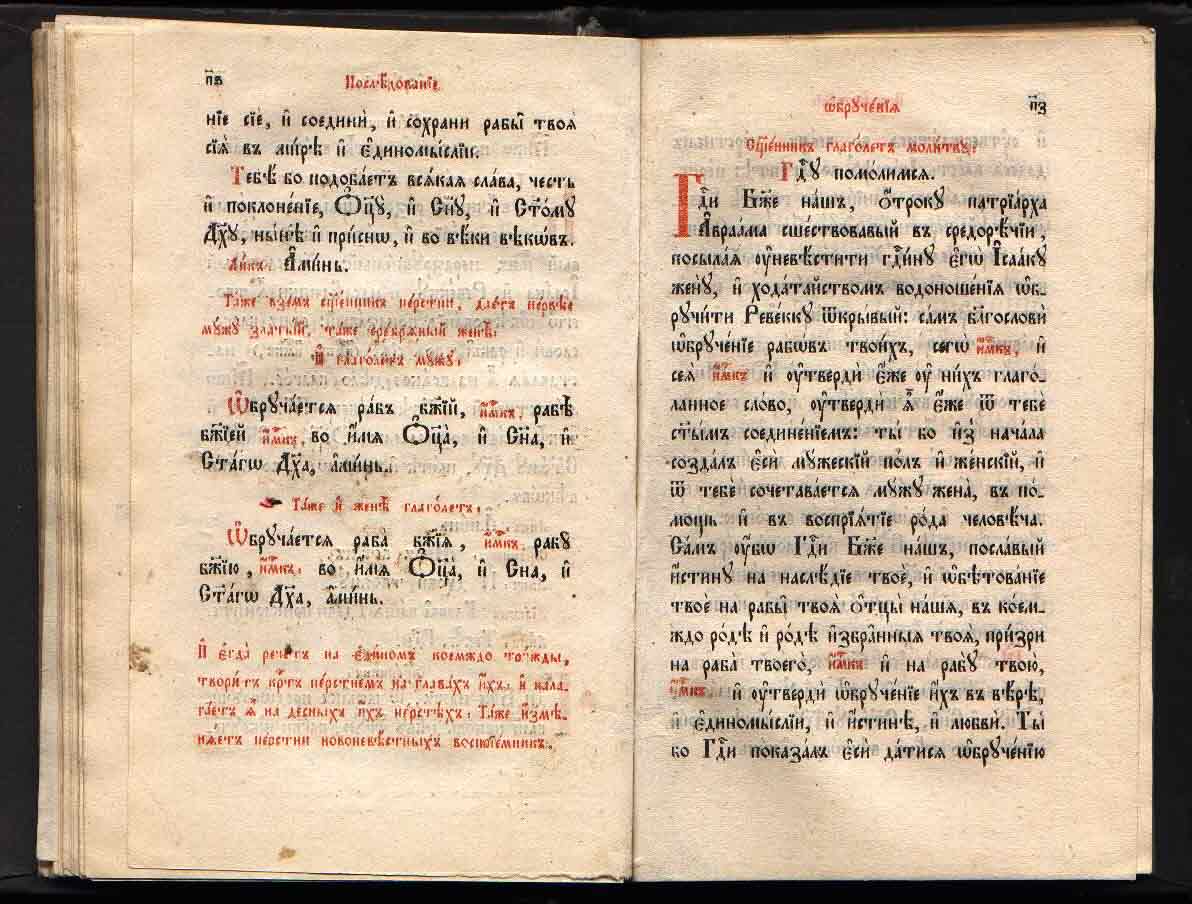 п҃ѕ Послѣ́дованїе
нїе сїѐ, и҆ соединѝ, и҆ сохранѝ рабы̑ твоѧ̑
сїѧ̑ въ ми́рѣ и҆ є҆диномы́слїи.
Тебѣ̀ бо подоба́етъ всѧ́каѧ сла́ва, че́сть
и҆ поклоне́нїе, Ѻ҆ц҃ꙋ̀, и҆ Сн҃ꙋ, и҆ Ст҃о́мꙋ
Дх҃ꙋ, ны́нѣ и҆ при́снѡ, и҆ во вѣ́ки вѣкѡ́въ.
Ли́къ: А҆ми́нь.
Та́же взе́мъ сщ҃е́нникъ пє́рстни, дае́тъ пе́рвѣе
мꙋ́жꙋ златы́й, та́же сре́брѧный женѣ̀:
И҆ глаго́летъ мꙋ́жꙋ:
Ѡ҆брꙋча́етсѧ ра́бъ бж҃їй, и҆́м҃къ, рабѣ̀
бж҃їей и҆́м҃къ, во и҆́мѧ Ѻ҆ц҃а̀, и҆ Сн҃а, и҆
Ст҃а́гѡ Дх҃а, а҆ми́нь.
Та́же и҆ женѣ̀ глаго́летъ:
Ѡ҆брꙋча́етсѧ раба̀ бж҃їѧ, и҆́м҃къ, рабꙋ̀
бж҃їю, и҆́м҃къ: во и҆́мѧ Ѻ҆ц҃а, и҆ Сн҃а, и҆
Ст҃а́гѡ Дх҃а, а҆ми́нь.
И҆ є҆гда̀ рече́тъ на є҆ди́номъ кое́мждо три́жды,
твори́тъ кр҃тъ пе́рстнемъ на глава́хъ и҆́хъ: и҆ нала-
га́етъ ѧ҆̀ на десны́хъ и҆́хъ пе́рстѣхъ: Та́же и҆змѣ-
нѧ́етъ пє́рстни новоневѣ́стныхъ воспрїе́мникъ.
Ѡ҆брꙋче́нїѧ п҃з
Сщ҃е́нникъ глаго́летъ моли́твꙋ:
Гд҇ꙋ помо́лимсѧ.
Гд҇и Бж҃е на́шъ, ѻ҆́трокꙋ патрїа́рха
А҆враа́ма сше́ствовавый въ средорѣ́чїи,
посыла́ѧ ᲂу҆невѣ́стити гд҇и́нꙋ є҆гѡ̀ І҆саа́кꙋ
женꙋ̀, и҆ хода́тайствомъ водоноше́нїѧ ѡ҆б-
рꙋчи́ти Реве́ккꙋ ѿкры́вый: са́мъ бл҃гословѝ
ѡ҆брꙋче́нїе рабѡ́въ твои́хъ, сегѡ̀ и҆́м҃къ, и҆
сеѧ̀ и҆́м҃къ и҆ ᲂу҆твердѝ є҆́же ᲂу҆ ни́хъ глаго́-
ланное сло́во, ᲂу҆твердѝ ѧ҆̀ є҆́же ѿ тебє̀
ст҃ы́мъ соедине́нїемъ: ты́ бо и҆з̾ нача́ла
созда́лъ є҆сѝ мꙋ́жескїй по́лъ и҆ же́нскїй, и҆
ѿ тебє̀ сочетава́етсѧ мꙋ́жꙋ жена̀, въ по́-
мощь и҆ въ воспрїѧ́тїе ро́да человѣ́ча.
Са́мъ ᲂу҆́бѡ Гд҇и Бж҃е на́шъ, посла́вый
и҆́стинꙋ на наслѣ́дїе твоѐ, и҆ ѡ҆бѣтова́нїе
твоѐ на рабы̑ твоѧ̑ ѻ҆тцы̀ на́шѧ, въ кое́м-
ждо ро́дѣ и҆ ро́дѣ и҆збра̑нныѧ твоѧ̑, при́зри
на раба̀ твоего̀, и҆́м҃къ и҆ на рабꙋ̀ твою̀,
и҆́м҃къ, и҆ ᲂу҆твердѝ ѡ҆брꙋче́нїе и҆́хъ въ вѣ́рѣ,
и҆ є҆диномы́слїи, и҆ и҆́стинѣ, и҆ любвѝ. Ты́
бо Гд҇и показа́лъ є҆сѝ да́тисѧ ѡ҆брꙋче́нїю